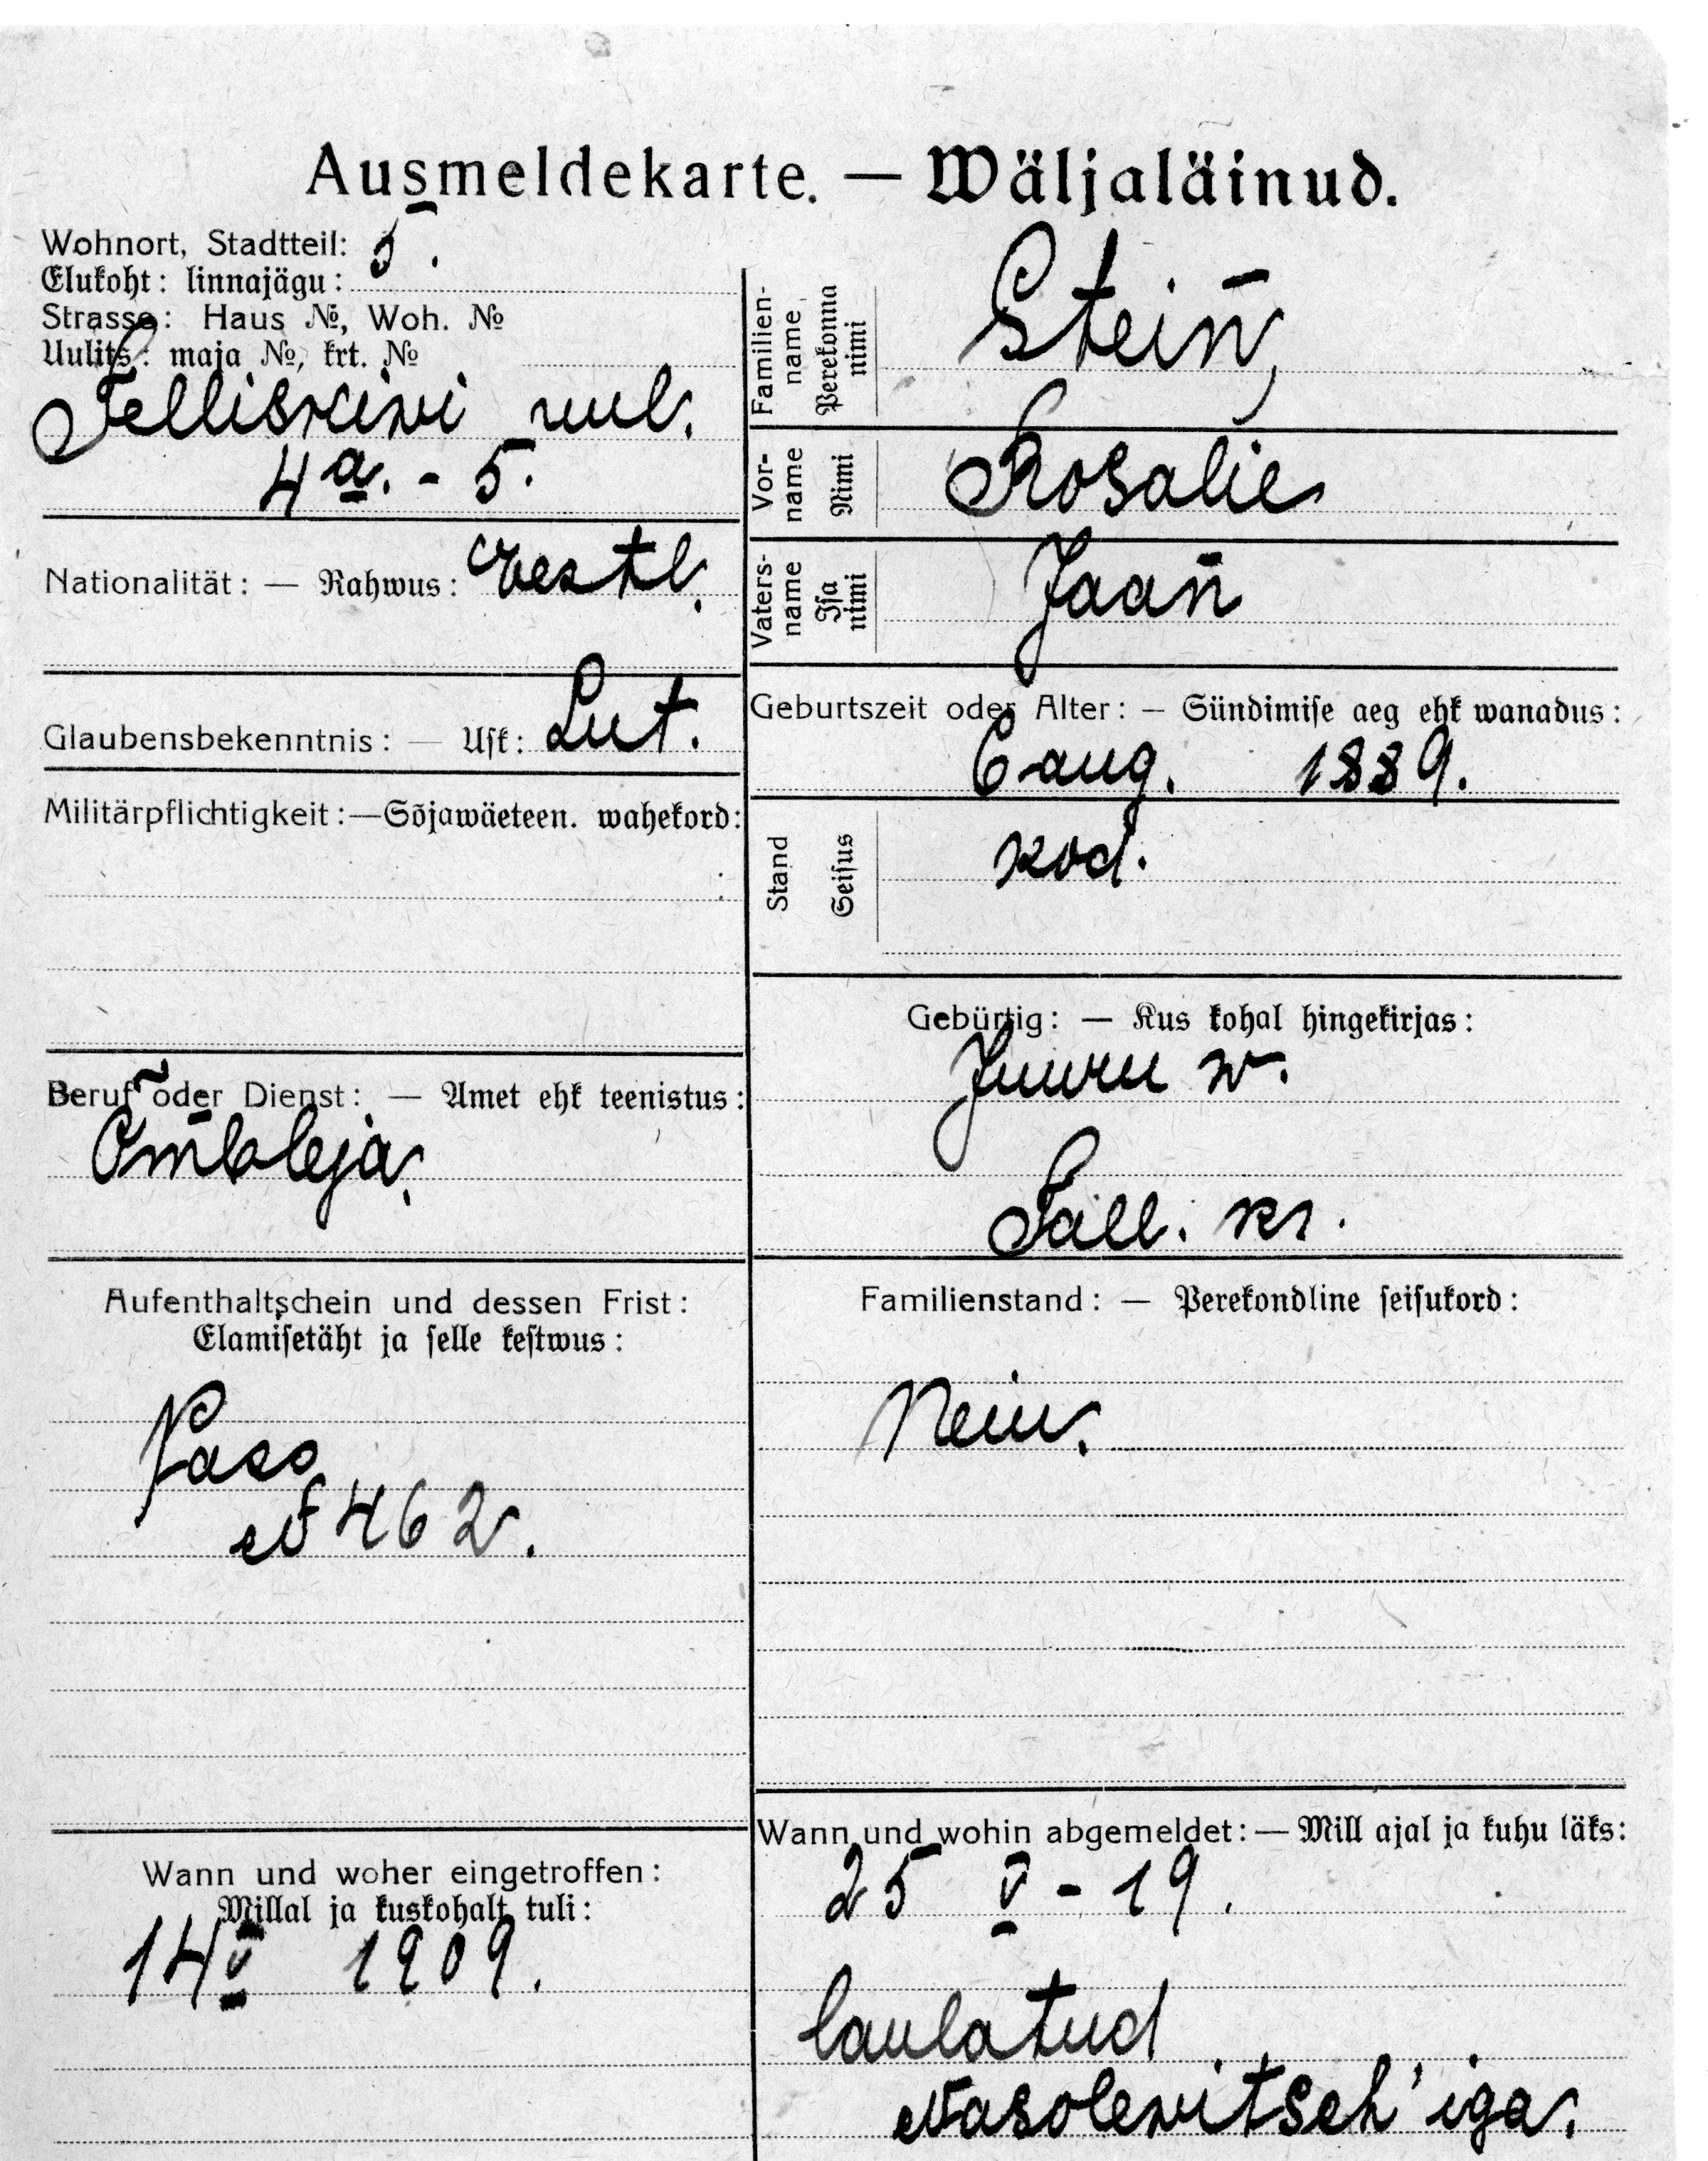 Ausmeldekarte. — Wäljaläinud.
Wohnort, Stadtteil: 5.
Elukoht: linnajägu:
Strasse: Haus №, Woh. №
Uulits: maja №, krt. №
Telliskiwi uul.
4a. - 5.
Nationalität: — Rahwus: eestl.
Glaubensbekenntnis: — Usk: Lut.
Militärpflichtigkeit: — Sõjawäeteen. wahekord:
Beruf oder Dienst: — Amet ehk teenistus:
Õmbleja.
Aufenthaltschein und dessen Frist:
Elamisetäht ja selle kestwus:
Pass
№ 462.
Wann und woher eingetroffen:
Millal ja kuskohalt tuli:
14 V 1909.
Familien-
name
Perekonna
nimi
Stein,
Vor-
name
Nimi
Rosalie
Vaters-
name
Isa
nimi
Jaan
Geburtszeit oder Alter: — Sündimise aeg ehk wanadus:
6 aug. 1889.
Stand
Seisus
kod.
Gebürtig: — Kus kohal hingekirjas:
Juuru w.
Tall. kr.
Familienstand: — Perekondline seisukord:
Neiu.
Wann und wohin abgemeldet: — Mill ajal ja kuhu läks:
25 V - 19.
laulatud
Wasolewitsch'iga.